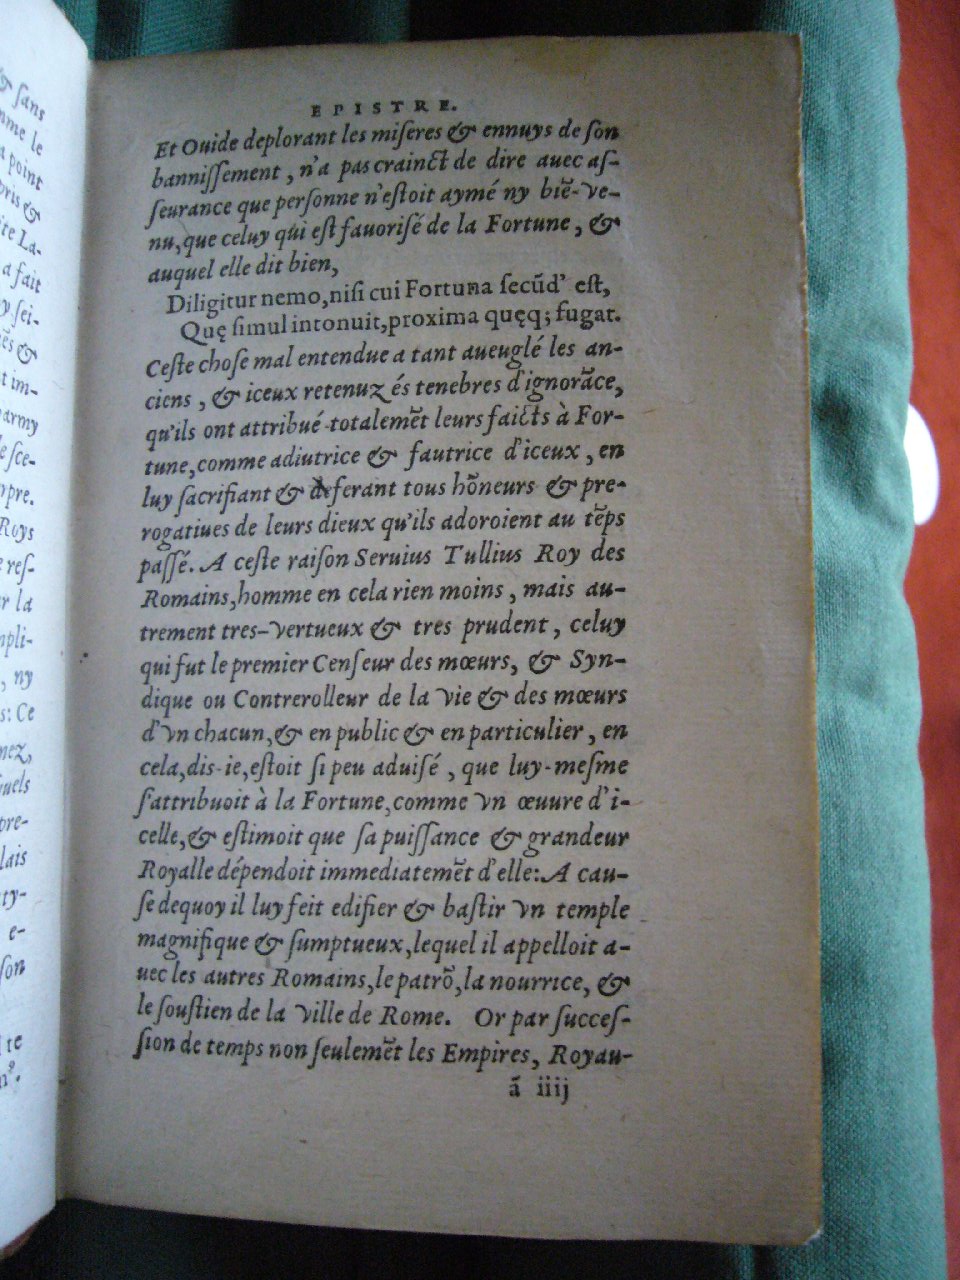 & sans
mme le
a point
pris &
ite La-
a fait
y sei-
ẽs &
t im-
army
le sce-
rpre.
Roys
res-
r la
mpli-
, ny
s: Ce
nez,
uels
pre-
lais
ty-
e-
son
l te
EPISTRE.
Et Ouide deplorant les miseres & ennuys de son
bannissement, n'a pas crainct de dire auec as-
seurance que personne n'estoit aymé ny biẽ-ve-
nu, que celuy qui est fauorisé de la Fortune, &
auquel elle dit bien,
Diligitur nemo, nisi cui Fortuna secũd' est,
Quę simul intonuit, proxima quęq; fugat.
Ceste chose mal entendue a tant aueuglé les an-
ciens, & iceux retenuz és tenebres d'ignorãce,
qu'ils ont attribué totalemẽt leurs faicts à For-
tune, comme adiutrice & fautrice d'iceux, en
luy sacrifiant & deferant tous hõneurs & pre-
rogatiues de leurs dieux qu'ils adoroient au tẽps
passé. A ceste raison Seruius Tullius Roy des
Romains, homme en cela rien moins, mais au-
trement tres-vertueux & tres prudent, celuy
qui fut le premier Censeur des mœurs, & Syn-
dique ou Contrerolleur de la vie & des mœurs
d'vn chacun, & en public & en particulier, en
cela, dis-ie, estoit si peu aduisé, que luy-mesme
s'attribuoit à la Fortune, comme vn œuure d'i-
celle, & estimoit que sa puissance & grandeur
Royalle dépendoit immediatemẽt d'elle: A cau-
se dequoy il luy feit edifier & bastir vn temple
magnifique & sumptueux, lequel il appelloit a-
uec les autres Romains, le patrõ, la nourrice, &
le soustien de la ville de Rome. Or par succes-
sion de temps non seulemẽt les Empires, Royau-
ã iiij